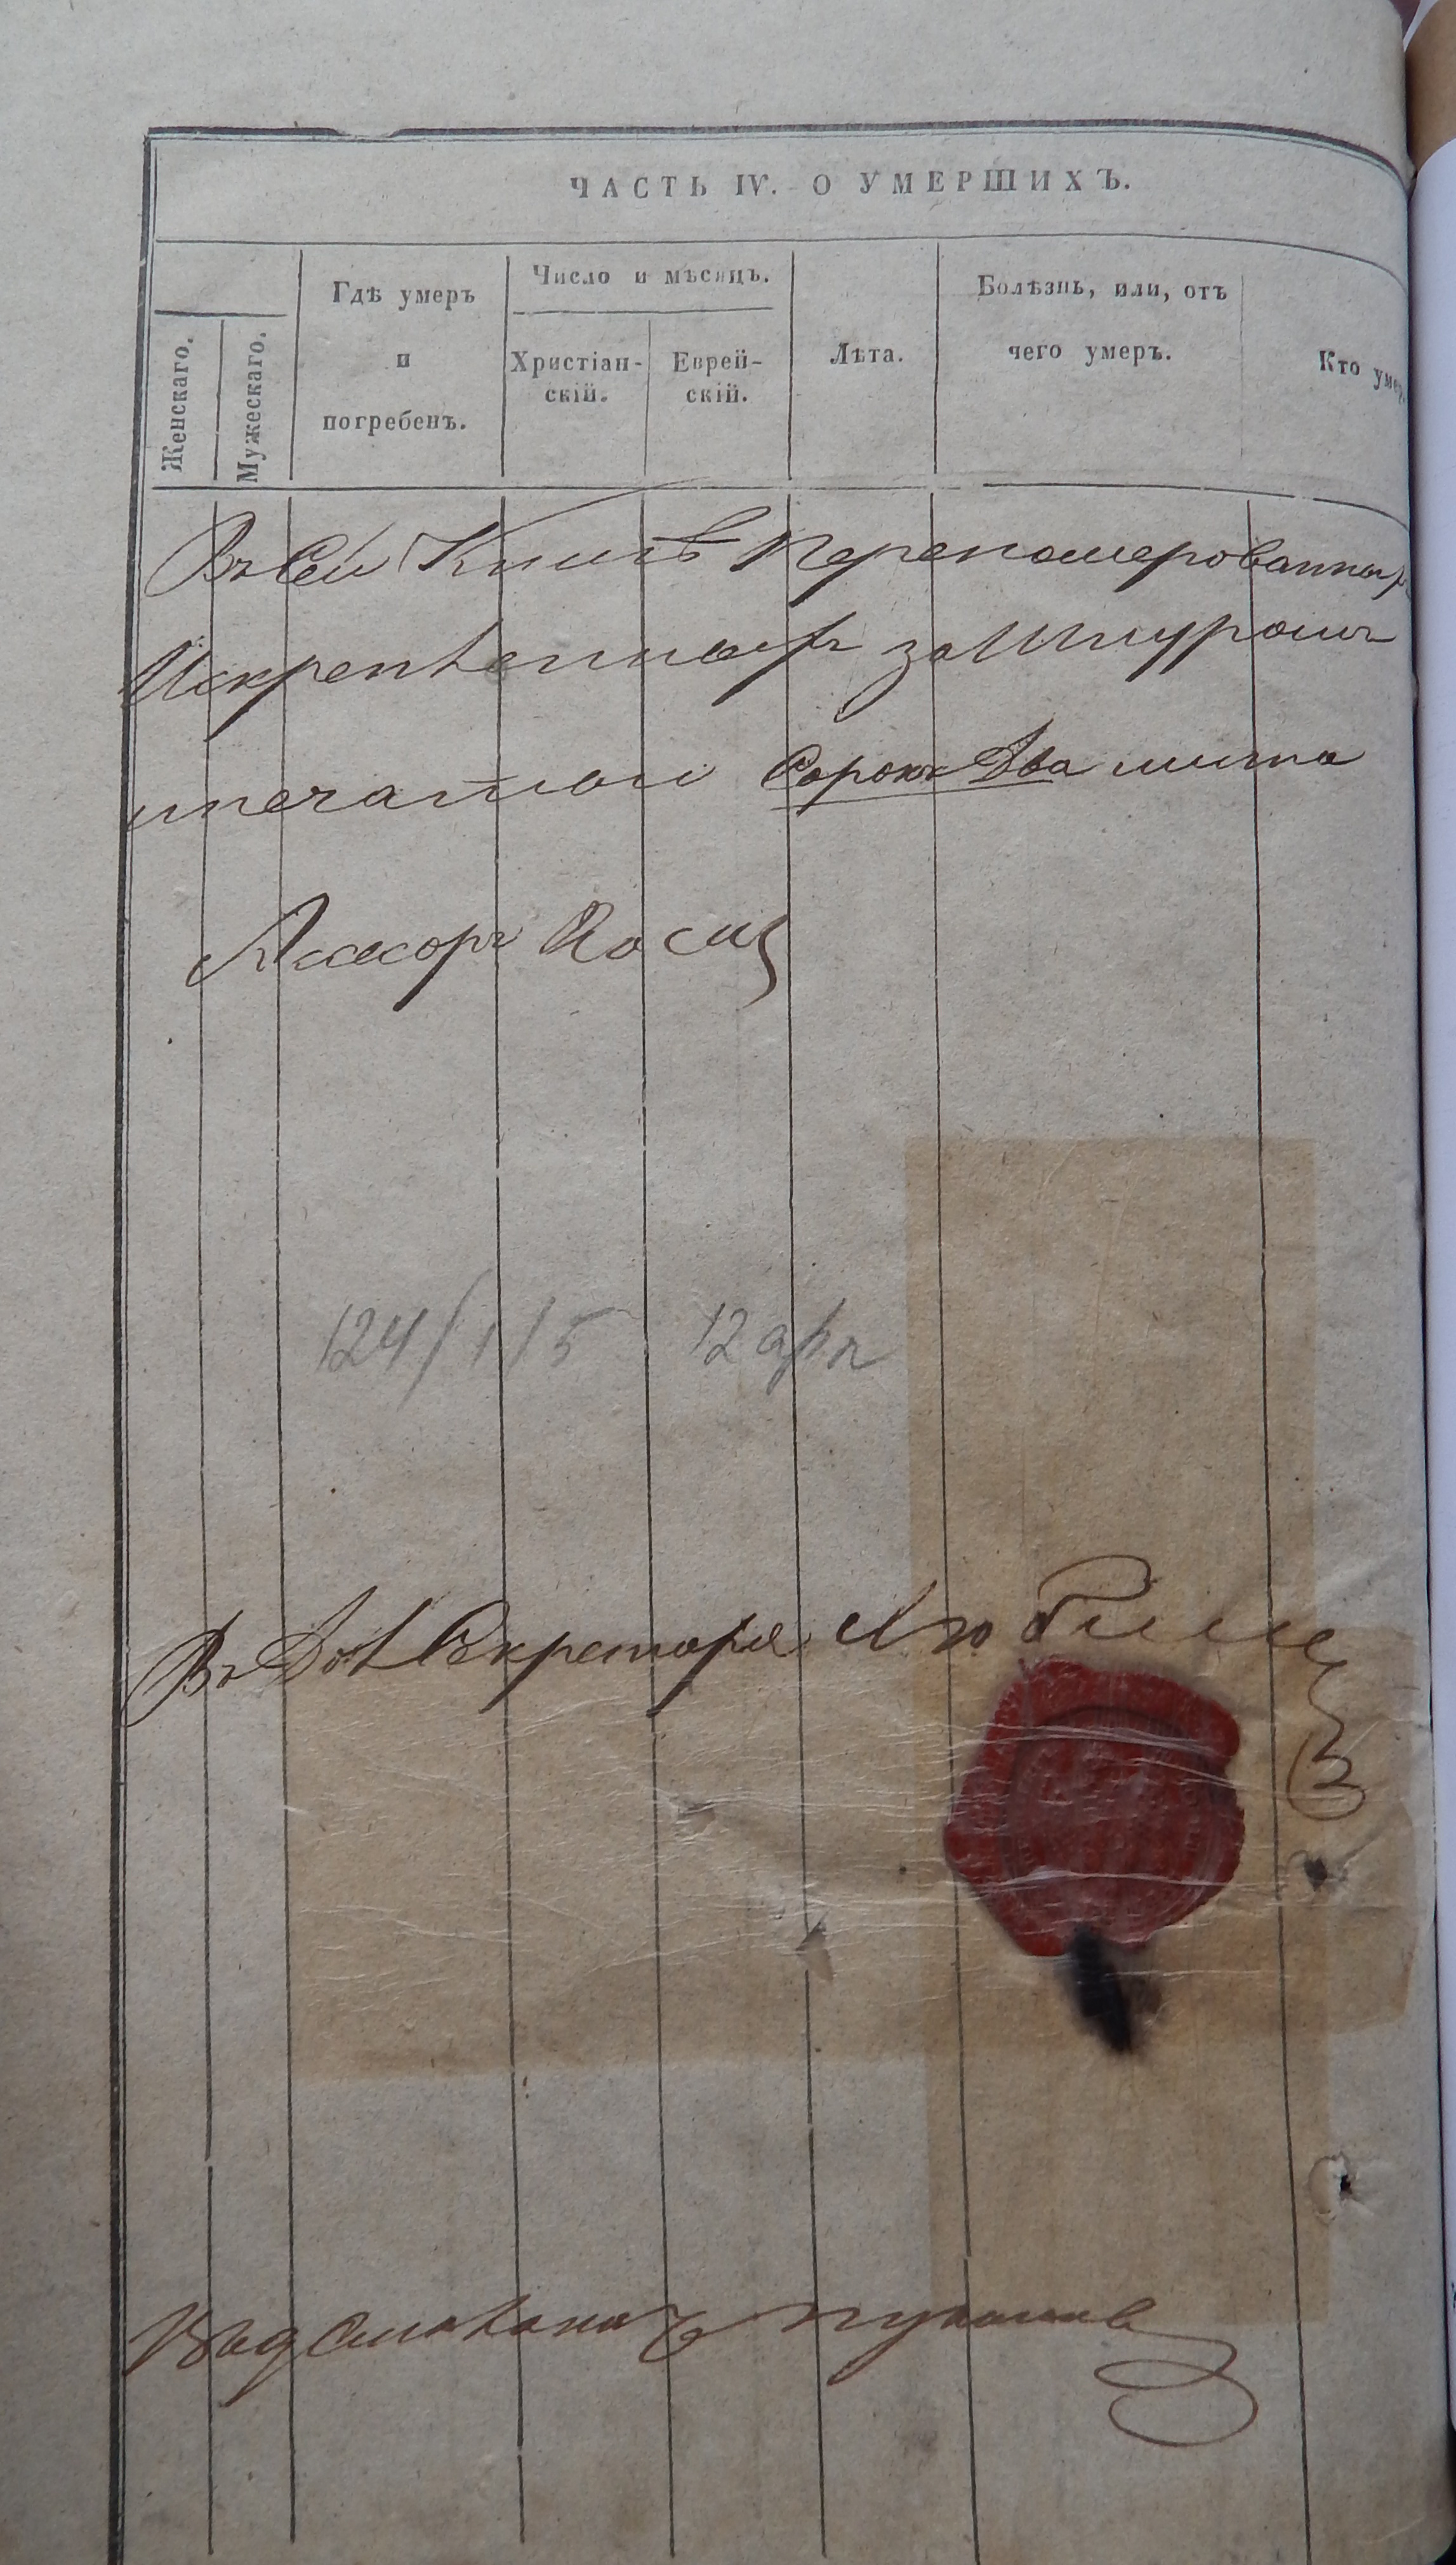 ЧАСТЬ IV. О УМЕРШИХЪ.
Женскаго.
Мужескаго.
Гдѣ умеръ
и
погребенъ.
Число и мѣсяцъ.
Христіан-
скій.
Еврей-
скій.
Лѣта.
Болѣзнь, или, отъ
чего умеръ.
Кто умер
Въ сей Книгѣ переномерованныхъ
Искрепленныхъ за Шнуромъ
ипечатью Сорокъ Два листа
Ассесоръ
124/1/5 12 арк
Въ Дол Секретаря